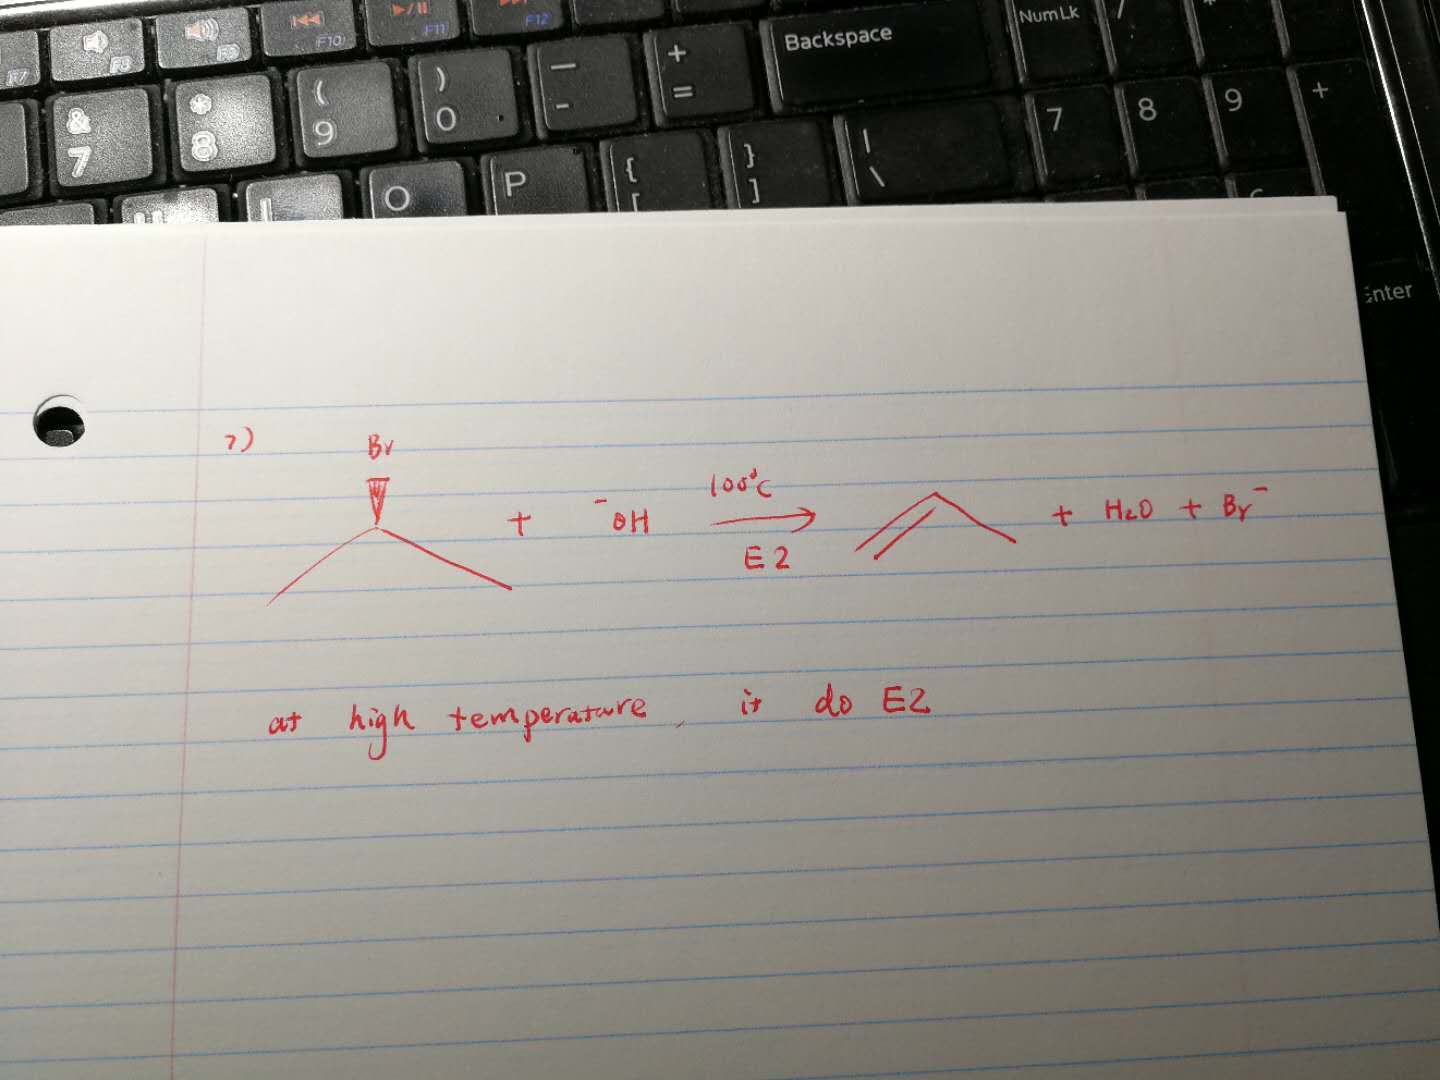 F7 F8 F9 F10 F11 F12
& 7 * 8 ( 9 ) 0 — - + = Backspace NumLk / *
O P { [ } ] | \ 7 8 9 +
Enter
7) Br
+ ⁻OH 100°C + H₂O + Br⁻
E2
at high temperature, it do E2